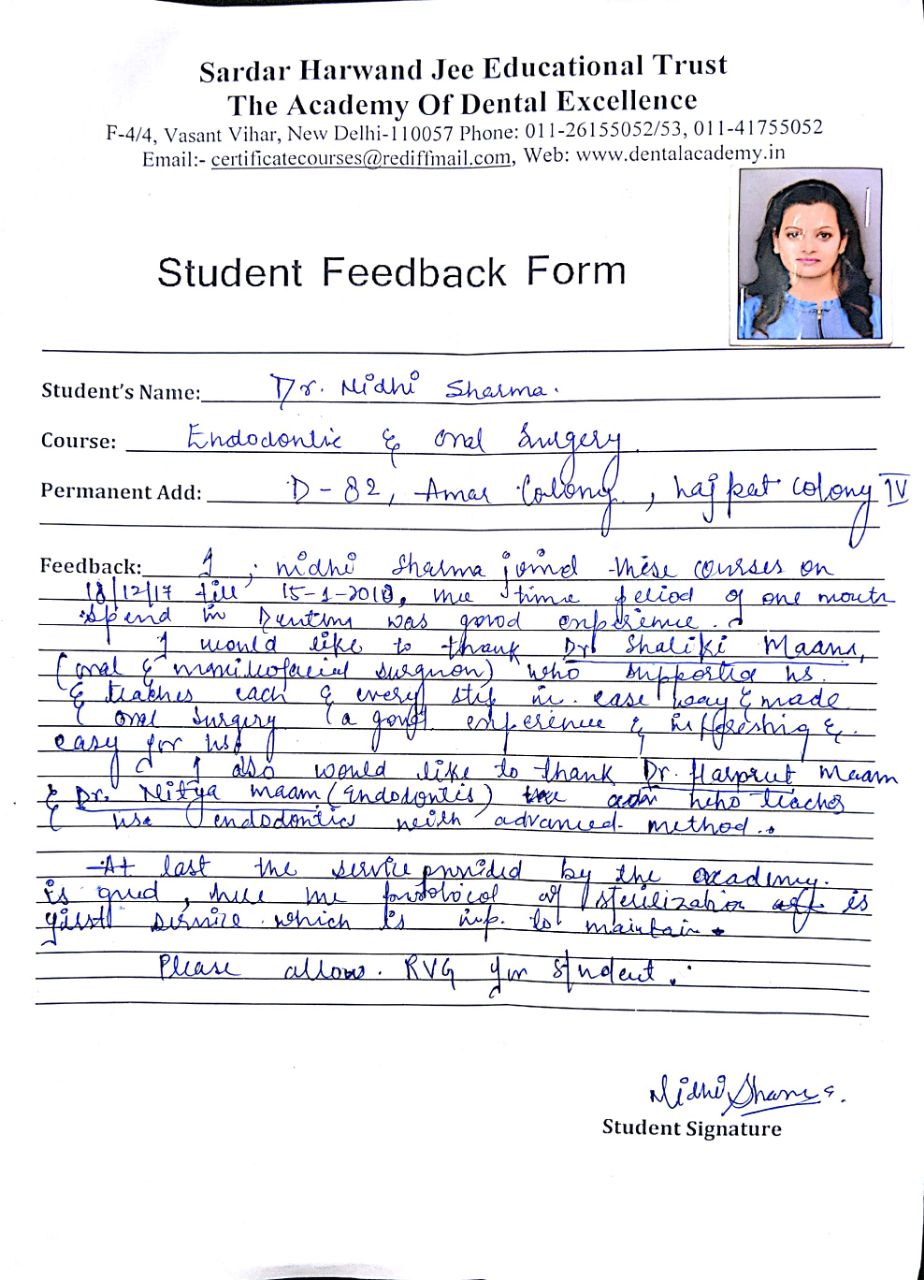 Sardar Harwand Jee Educational Trust
The Academy Of Dental Excellence
F-4/4, Vasant Vihar, New Delhi-110057 Phone: 011-26155052/53, 011-41755052
Email:- certificatecourses@rediffmail.com, Web: www.dentalacademy.in
Student Feedback Form
Student's Name: Dr. Nidhi Sharma.
Course: Endodontic & Oral Surgery
Permanent Add: D-82, Amar Colony, Lajpat Colony IV
Feedback: I, Nidhi Sharma joind these courses on
18/12/17 till 15-1-2018, the time period of one month
spend in was good experience.
I would like to thank Dr Shaliki Maam,
(oral & surgeon) who supported us.
& teaches each & every step in ease way & made
oral surgery a good experience & &
easy for us
I also would like to thank Dr. Harprut Maam
& Dr. Nitya maam (Endodontis) who teaches
use endodontics with advanced method.
At last the service provided by the academy.
is good, here the of sterilization is
service which is imp. to maintain.
Please allow RVG for student.
Nidhi Sharma.
Student Signature